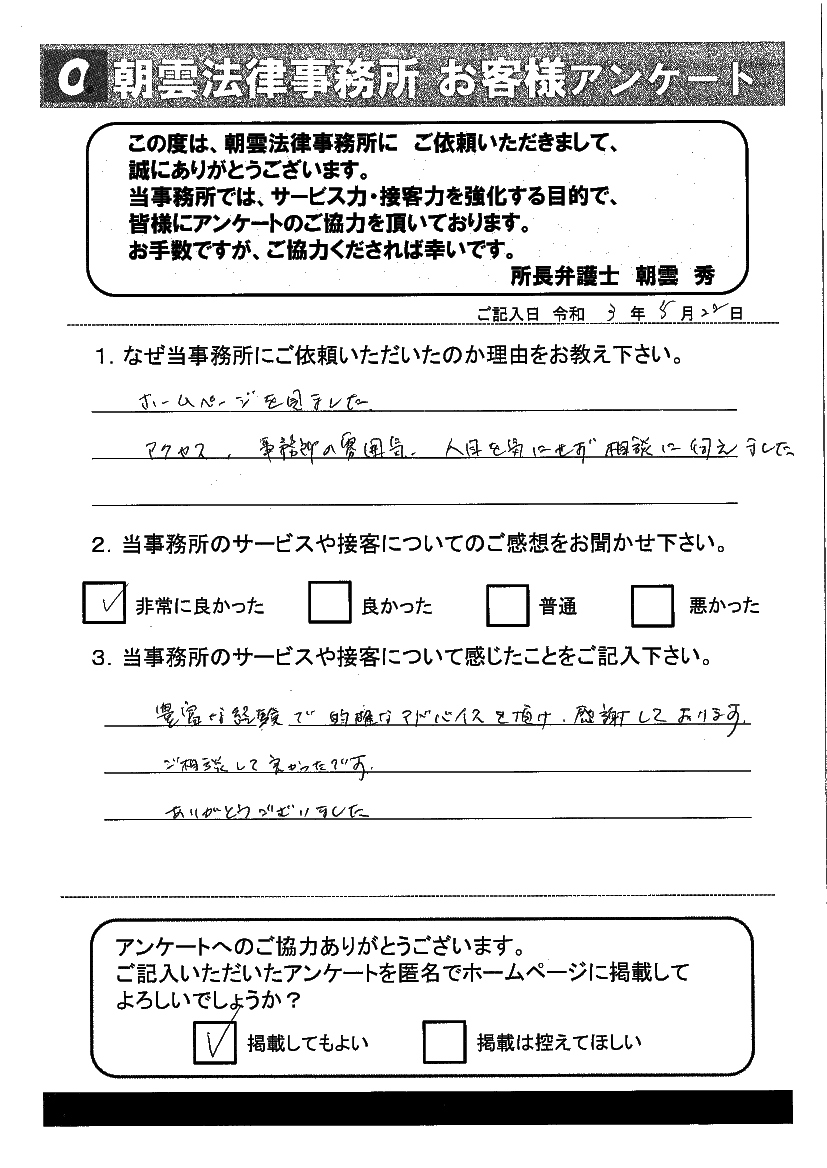 a. 朝雲法律事務所 お客様アンケート
この度は、朝雲法律事務所に ご依頼いただきまして、
誠にありがとうございます。
当事務所では、サービス力・接客力を強化する目的で、
皆様にアンケートのご協力を頂いております。
お手数ですが、ご協力くだされば幸いです。
所長弁護士 朝雲 秀
ご記入日 令和 3 年 5 月 28 日
1. なぜ当事務所にご依頼いただいたのか理由をお教え下さい。
ホームページを見ました
アクセス、事務所の雰囲気、人目を気にせず相談に伺えました
2. 当事務所のサービスや接客についてのご感想をお聞かせ下さい。
✓ 非常に良かった 良かった 普通 悪かった
3. 当事務所のサービスや接客について感じたことをご記入下さい。
豊富な経験で的確なアドバイスを頂け、感謝しております。
ご相談して良かったです。
ありがとうございました
アンケートへのご協力ありがとうございます。
ご記入いただいたアンケートを匿名でホームページに掲載して
よろしいでしょうか？
✓ 掲載してもよい 掲載は控えてほしい